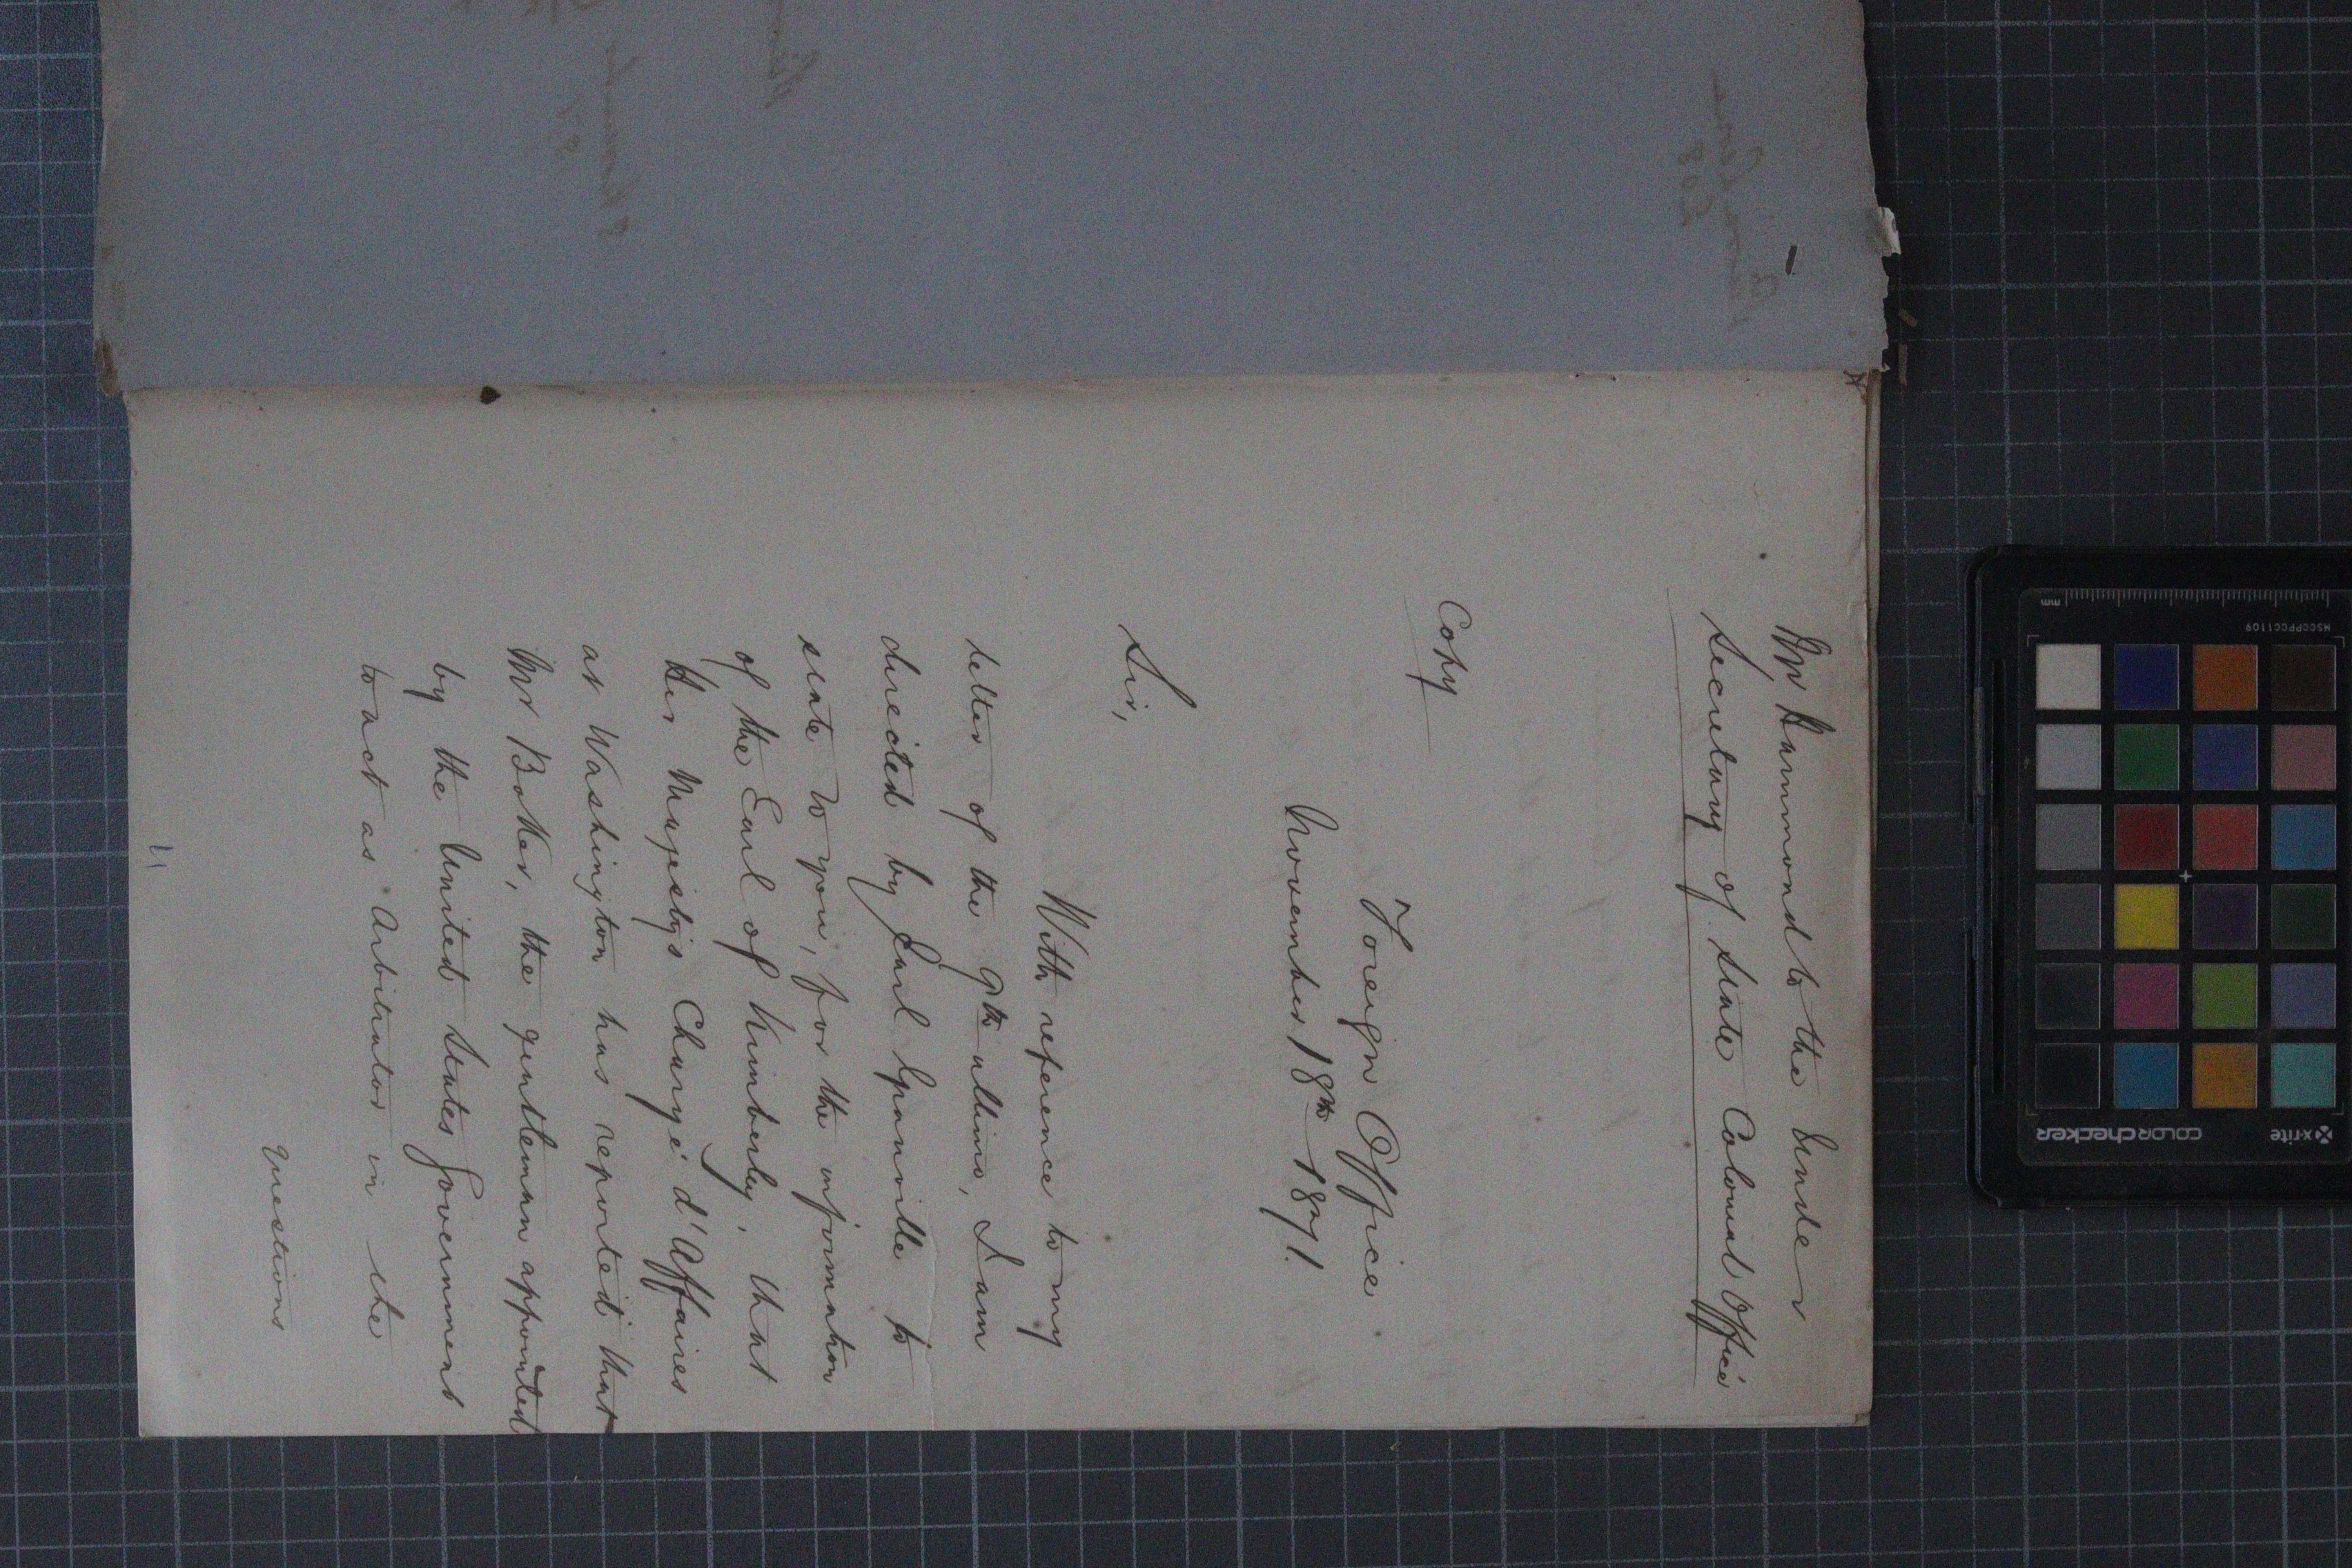 Mr Hammond to the Under
Secretary of State Colonial Office
Copy
Foreign Office
November 18th 1871.
Sir,
With reference to my
letter of the 9th ultimo, I am
directed by Earl Granville to
state to you, for the information
of the Earl of Kimberley, that
Her Majesty's Chargé d'Affaires
at Washington has reported that
Mr Boker, the gentleman appointed
by the United States Government
to act as Arbitrator in the
Questions
x-rite
colorchecker
MSCCPPCC1109
mm